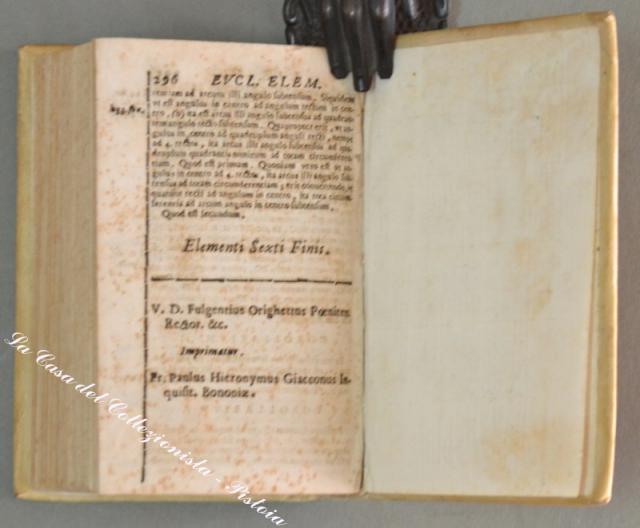 296 EVCL. ELEM.
rentiam ad arcum illi angulo subtensum. Siquidem
vt est angulus in centro ad angulum rectum in cen-
tro, (b) ita est arcus illi angulo subtensus ad quadran-
tem angulo recto subtensum. Quapropter erit, vt an-
gulus in centro ad quadruplum anguli recti, nempe
ad 4. rectos, ita arcus illi angulo subtensus ad qua-
druplum quadrantis nimirum ad totam circumferen-
tiam. Quod est primum. Quoniam vero est vt an-
gulus in centro ad 4. rectos, ita arcus illi angulo sub-
tensus ad totam circumferentiam; erit conuertendo, vt
quatuor recti ad angulum in centro, ita tota circum-
ferentia ad arcum angulo in centro subtensum.
Quod est secundum.
Elementi Sexti Finis.
V. D. Fulgentius Orighettus Pœniten.
Rector. &c.
Imprimatur.
Fr. Paulus Hieronymus Giacconus In-
quisit. Bononiæ.
La Casa del Collezionista - Pistoia